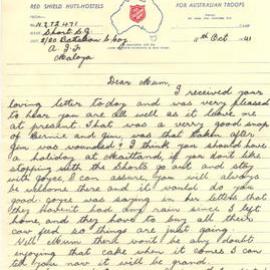 RED SHIELD HUTS-HOSTELS
FOR AUSTRALIAN TROOPS
NX
Short S.J.
A.I.F.
Malaya
Oct 41
Dear Mum,
I received your
loving letter to-day and was very pleased
to hear you are all well as it leaves me
at present. That was a very good snap
of Bernie and Jim was that taken after
Jim was wounded? I think you should have
a holiday at Maitland, if you don't like
stopping with the Shorts go out and stay
with Joyce, I can assure, you will always
be welcome there and it would do you
good. Joyce was saying in her letters that
they hadn't had any rain since I left
home, and they have to buy all their
cow feed so things are just going.
Well Mum there wont be any doubt
enjoying that cake when it comes I can
tell you now it will be grand.